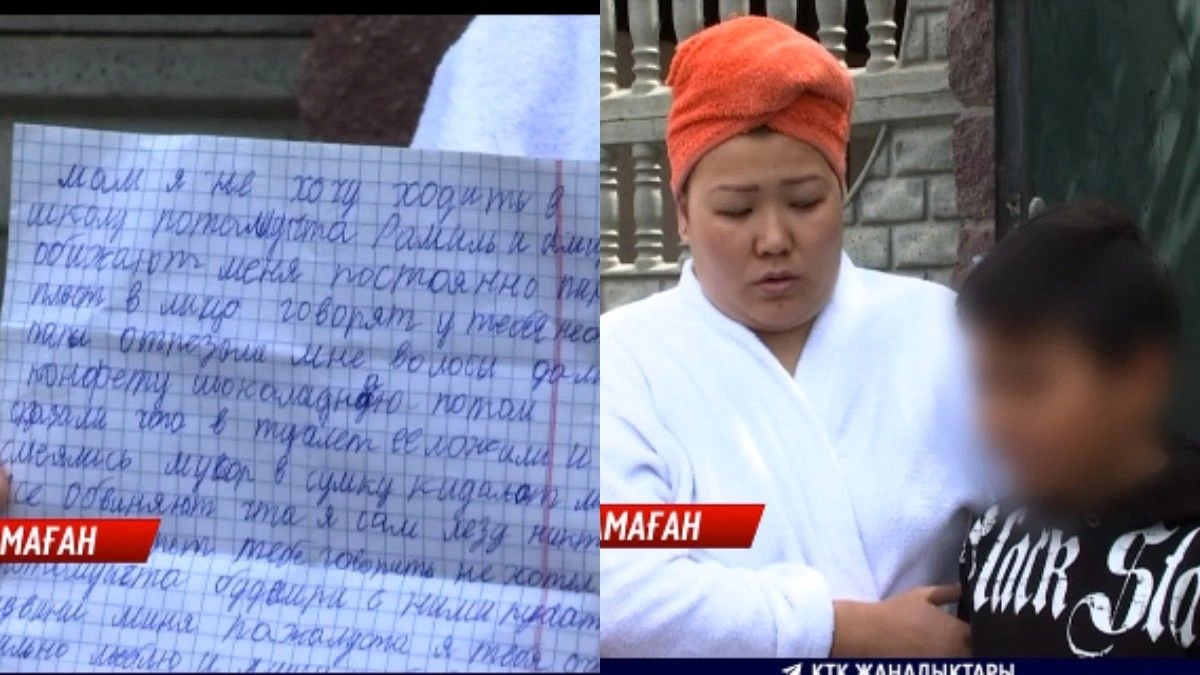 мам я не хочу ходить в
школу потомушта Рамиль и
обижают меня постоянно
плют в лицо говорят у тебя
папы отрезали мне волосы
конфету шоколадную потом
сказали чта в туалет ее ложили и
смеялись мувор в сумку кидают
се обвиняют чта я сам
тебе говорить не хотел
с ними
миня пажалуста я тебя
люблю и
МАҒАН
МАҒАН
lack Sta
КТК ЖАҢАЛЫҚТАРЫ